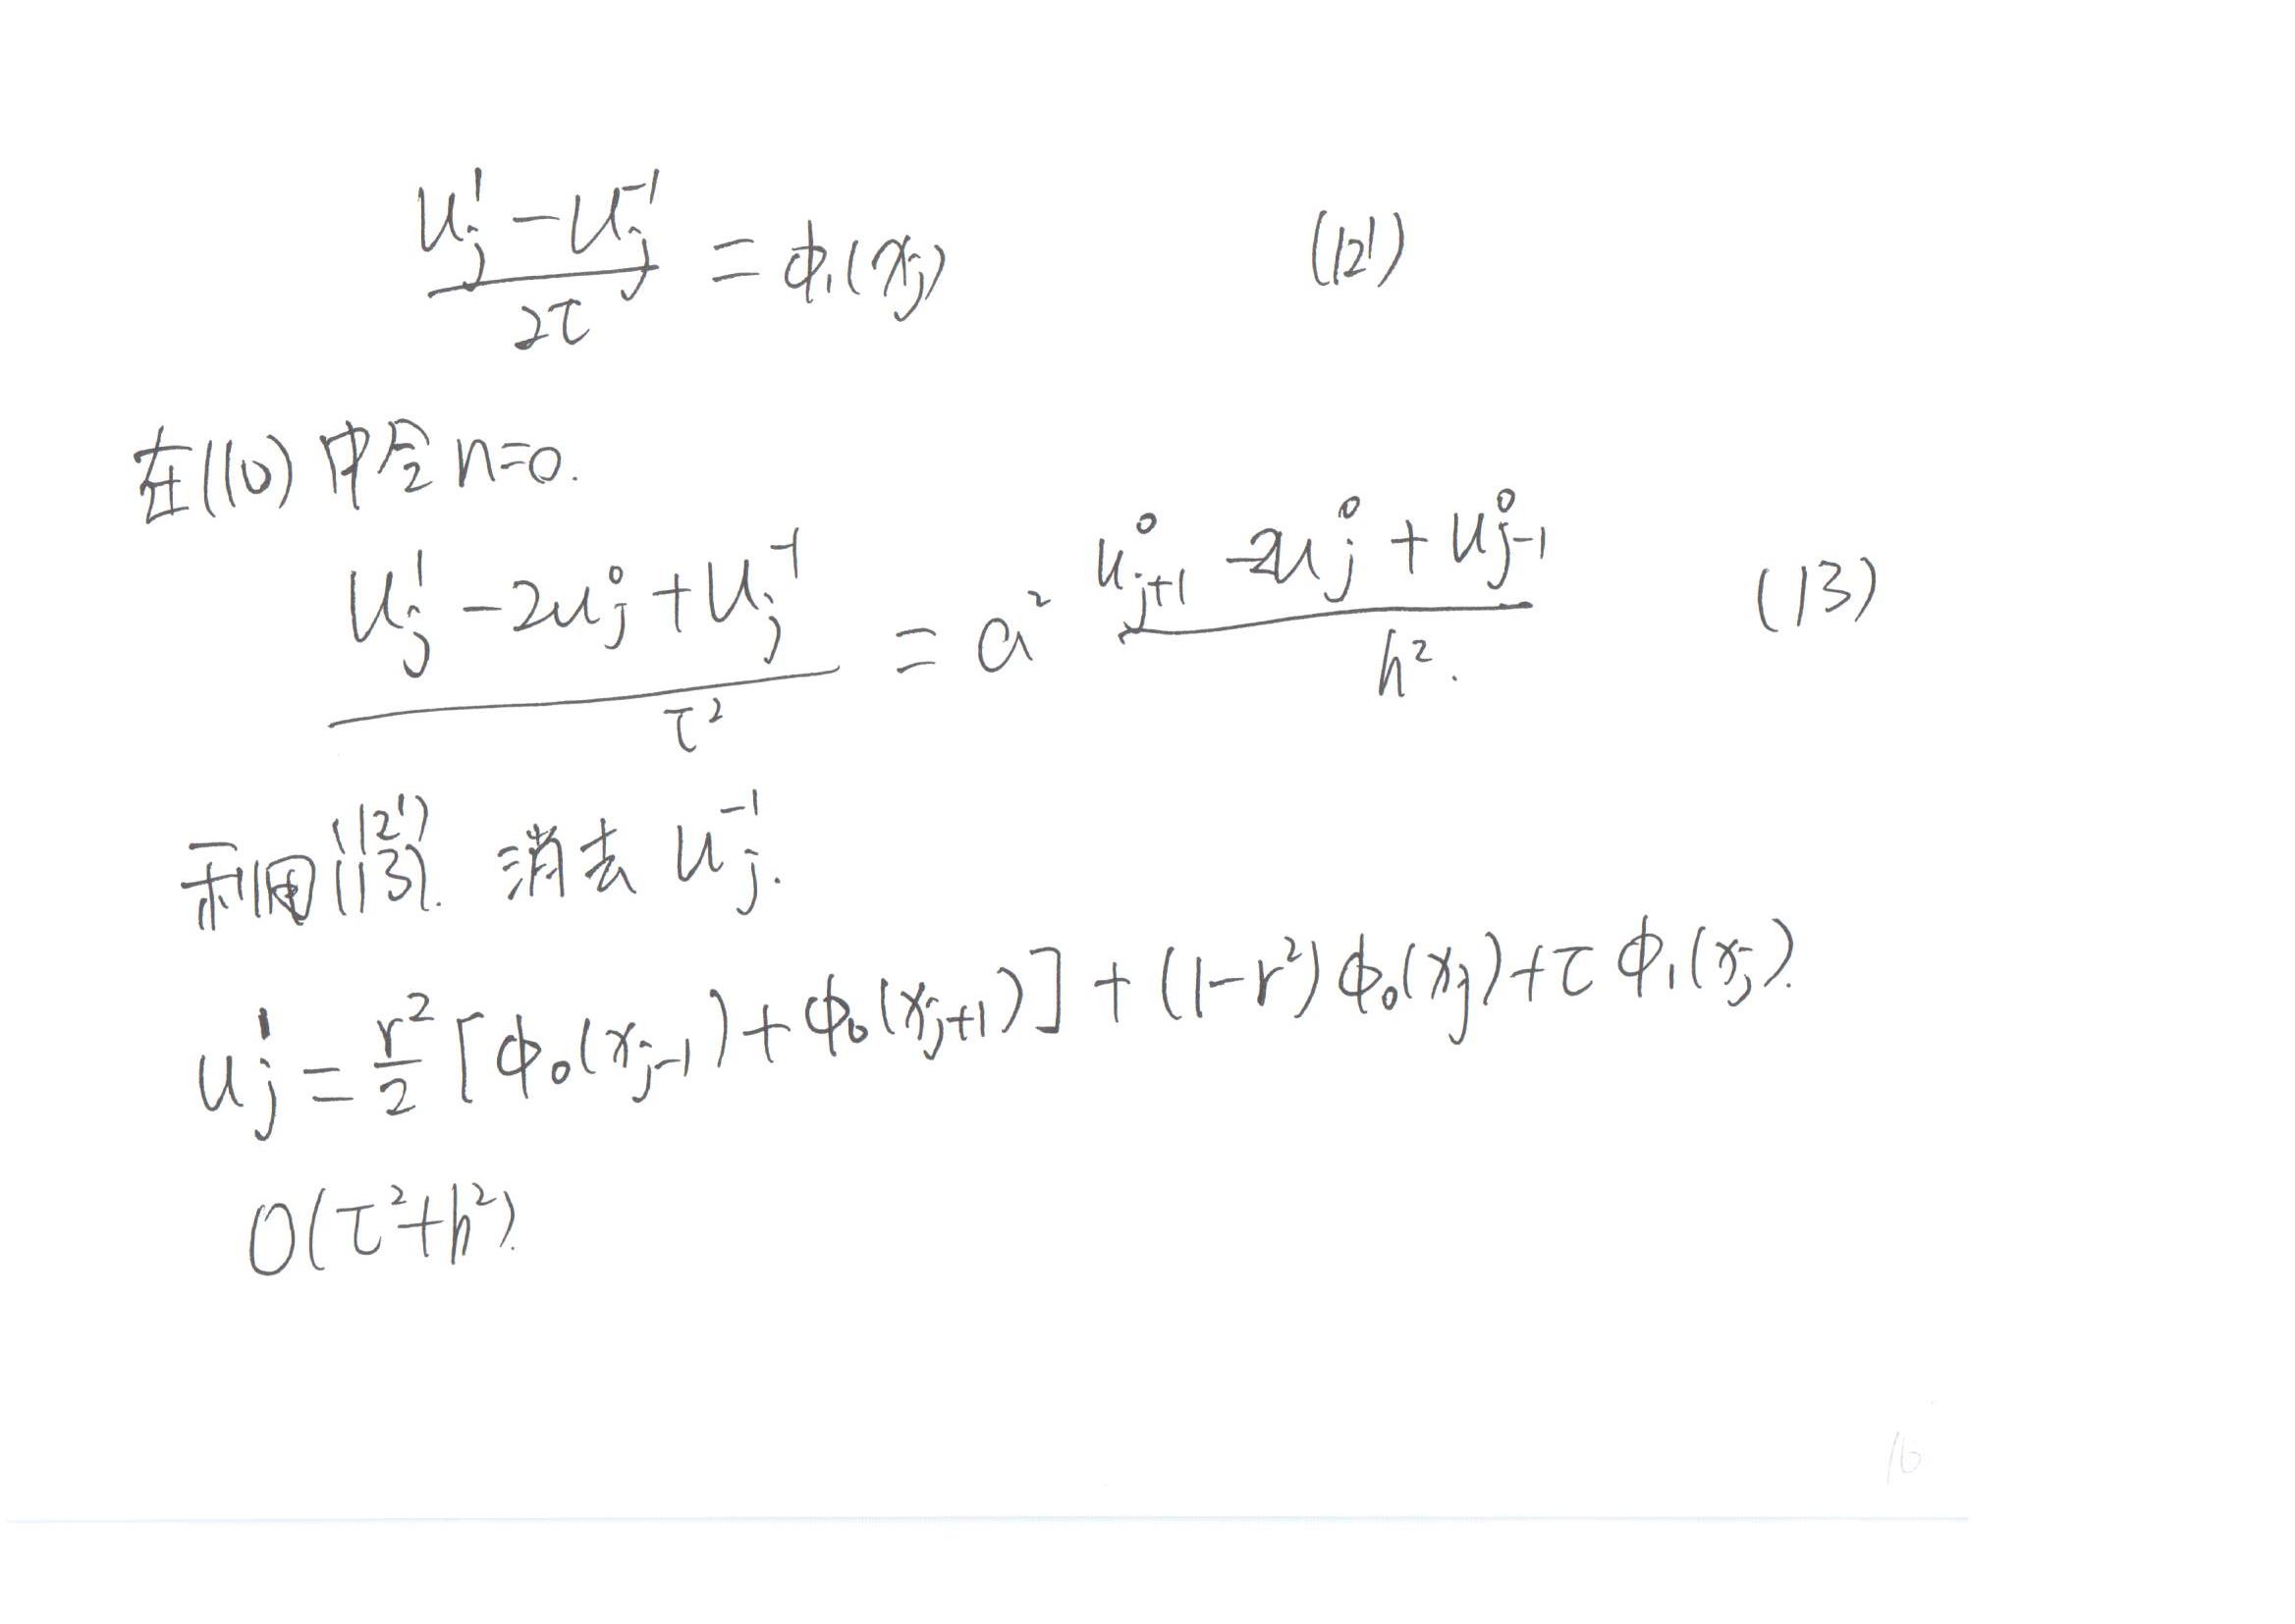 $\frac{u_j^1 - u_j^{-1}}{2\tau} = \phi_1(x_j)$ (12')
在(10)中令 n=0.
$\frac{u_j^1 - 2u_j^0 + u_j^{-1}}{\tau^2} = a^2 \frac{u_{j+1}^0 - 2u_j^0 + u_{j-1}^0}{h^2}.$ (13)
利用(12')(13). 消去 $u_j^{-1}$.
$u_j^1 = \frac{r^2}{2} [\phi_0(x_{j-1}) + \phi_0(x_{j+1})] + (1-r^2)\phi_0(x_j) + \tau \phi_1(x_j).$
$O(\tau^2 + h^2).$
16